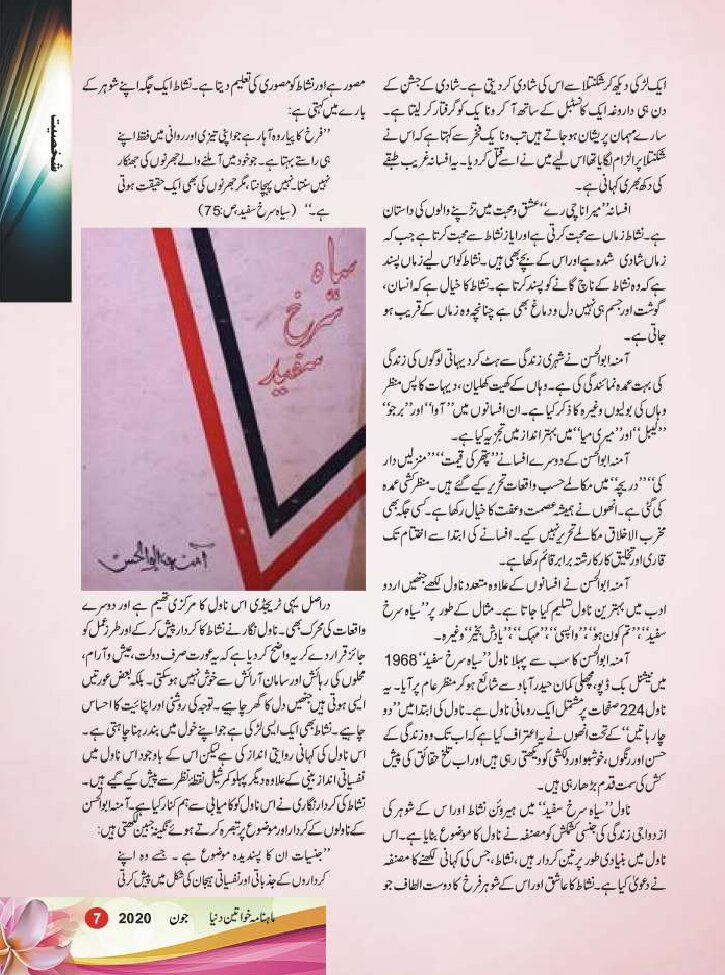 شخصیت
ایک لڑکی دیکھ کر شکنتلا سے اس کی شادی کر دیتی ہے۔ شادی کے جشن کے
دن ہی داروغہ ایک کانسٹبل کے ساتھ آ کر ونایک کو گرفتار کر لیتا ہے۔
سارے مہمان پریشان ہو جاتے ہیں تب ونایک فخر سے کہتا ہے کہ اس نے
شکنتلا پر الزام لگایا تھا اس لیے میں نے اسے قتل کر دیا۔ یہ افسانہ غریب طبقے
کی دکھ بھری کہانی ہے۔
افسانہ ’’میرا ناچی رے‘‘ عشق و محبت میں تڑپنے والوں کی داستان
ہے۔ نشاط زماں سے محبت کرتی ہے اور ایاز نشاط سے محبت کرتا ہے جب کہ
زماں شادی شدہ ہے اور اس کے بچے بھی ہیں۔ نشاط کو اس لیے زماں پسند
ہے کہ وہ نشاط کے ناچ گانے کو پسند کرتا ہے۔ نشاط کا خیال ہے کہ انسان،
گوشت اور جسم ہی نہیں دل و دماغ بھی ہے چنانچہ وہ زماں کے قریب ہو
جاتی ہے۔
آمنہ ابوالحسن نے شہری زندگی سے ہٹ کر دیہاتی لوگوں کی زندگی
کی بہت عمدہ نمائندگی کی ہے۔ وہاں کے کھیت کھلیان، دیہات کا پس منظر
وہاں کی بولیوں وغیرہ کا ذکر کیا ہے۔ ان افسانوں میں ’’آوا‘‘ اور ’’برجو‘‘
’’لیبل‘‘ اور ’’میری میا‘‘ میں بہتر انداز میں تجزیہ کیا ہے۔
آمنہ ابوالحسن کے دوسرے افسانے ’’پتھر کی قیمت‘‘ ’’منزلیں دار
کی‘‘ ’’دریچہ‘‘ میں مکالمے حسب واقعات تحریر کیے گئے ہیں۔ منظر کشی عمدہ
کی گئی ہے۔ انھوں نے ہمیشہ عصمت و عفت کا خیال رکھا ہے۔ کسی جگہ بھی
مخرب الاخلاق مکالمے تحریر نہیں کیے۔ افسانے کی ابتدا سے اختتام تک
قاری اور تخلیق کار کا رشتہ برابر قائم رکھا ہے۔
آمنہ ابوالحسن نے افسانوں کے علاوہ متعدد ناول لکھے جنھیں اردو
ادب میں بہترین ناول تسلیم کیا جاتا ہے۔ مثال کے طور پر ’’سیاہ سرخ
سفید‘‘، ’’تم کون ہو‘‘، ’’واپسی‘‘، ’’مہک‘‘، ’’یادش بخیر‘‘ وغیرہ۔
آمنہ ابوالحسن کا سب سے پہلا ناول ’’سیاہ سرخ سفید‘‘ 1968
میں نیشنل بک ڈپو، مچھلی کمان حیدرآباد سے شائع ہو کر منظر عام پر آیا۔ یہ
ناول 224 صفحات پر مشتمل ایک رومانی ناول ہے۔ ناول کی ابتدا میں ’’دو
چار باتیں‘‘ کے تحت انھوں نے یہ اعتراف کیا ہے کہ اب تک وہ زندگی کے
حسن اور رنگوں، خوشبو اور دلکشی کو دیکھتی رہی ہیں اور اب تلخ حقائق کی پیش
کش کی سمت قدم بڑھا رہی ہیں۔
ناول ’’سیاہ سرخ سفید‘‘ میں ہیروئن نشاط اور اس کے شوہر کی
ازدواجی زندگی کی جنسی کشمکش کو مصنفہ نے ناول کا موضوع بنایا ہے۔ اس
ناول میں بنیادی طور پر تین کردار ہیں، نشاط، جس کی کہانی لکھنے کا مصنفہ
نے دعویٰ کیا ہے۔ نشاط کا عاشق اور اس کے شوہر فرخ کا دوست الطاف جو
مصور ہے اور نشاط کو مصوری کی تعلیم دیتا ہے۔ نشاط ایک جگہ اپنے شوہر کے
بارے میں کہتی ہے:
’’فرخ کا پیار وہ آبپار ہے جو اپنی تیزی اور روانی میں فقط اپنے
ہی راستے بہتا ہے۔ جو خود میں آملنے والے جھرنوں کی جھنکار
نہیں سنتا۔ نہیں پہچانتا، مگر جھرنوں کی بھی ایک حقیقت ہوتی
ہے۔‘‘ (سیاہ سرخ سفید، ص:75)
سیاہ
سرخ
سفید
آمنہ ابوالحسن
دراصل یہی ٹریجڈی اس ناول کا مرکزی تھیم ہے اور دوسرے
واقعات کی محرک بھی۔ ناول نگار نے نشاط کا کردار پیش کر کے اور طرز عمل کو
جائز قرار دے کر یہ واضح کر دیا ہے کہ یہ عورت صرف دولت، عیش و آرام،
محلوں کی رہائش اور سامان آرائش سے خوش نہیں ہو سکتی۔ بلکہ بعض عورتیں
ایسی ہوتی ہیں جنھیں دل کا گھر چاہیے۔ توجہ کی روشنی اور اپنائیت کا احساس
چاہیے۔ نشاط بھی ایک ایسی لڑکی ہے جو اپنے خول میں بند رہنا چاہتی ہے۔
اس ناول کی کہانی روایتی انداز کی ہے لیکن اس کے باوجود اس ناول میں
نفسیاتی انداز بینی کے علاوہ دیگر پہلو کمرشیل نقطۂ نظر سے پیش کیے گیے ہیں۔
نشاط کی کردار نگاری نے اس ناول کو کامیابی سے ہم کنار کیا ہے۔ آمنہ ابوالحسن
کے ناولوں کے کردار اور موضوع پر تبصرہ کرتے ہوئے نگینہ جبین لکھتی ہیں:
’’جنسیات ان کا پسندیدہ موضوع ہے۔ جسے وہ اپنے
کرداروں کے جذباتی اور نفسیاتی ہیجان کی شکل میں پیش کرتی
ماہنامہ خواتین دنیا جون 2020 7